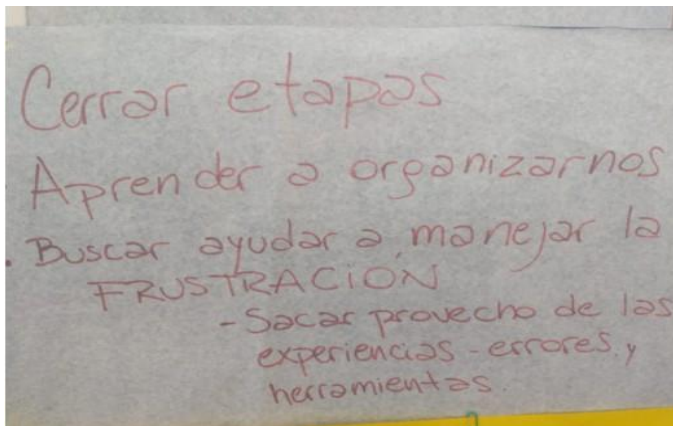 Cerrar etapas
. Aprender a organizarnos
. Buscar ayudar a manejar la
FRUSTRACIÓN
- Sacar provecho de las
experiencias - errores y
herramientas.